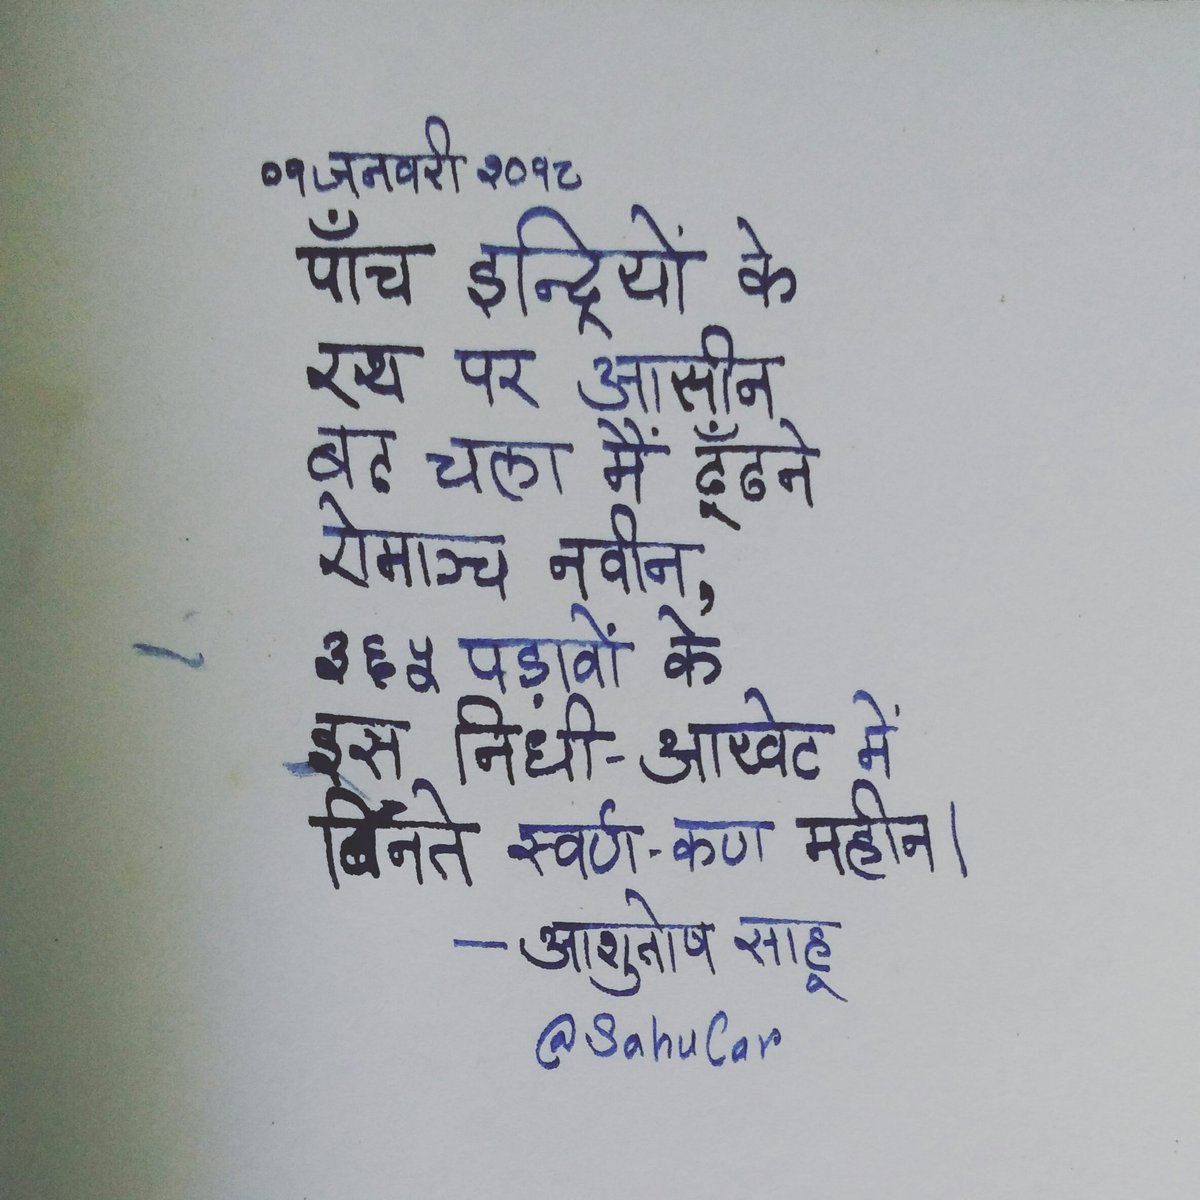 ०१ जनवरी २०१८
पाँच इन्द्रियों के
रथ पर आसीन
बढ चला मैं ढूँढने
रोमाञ्च नवीन,
३६५ पड़ावों के
इस निधी-आखेट में
बिनते स्वर्ण-कण महीन।
— आशुतोष साहू
@SahuCar